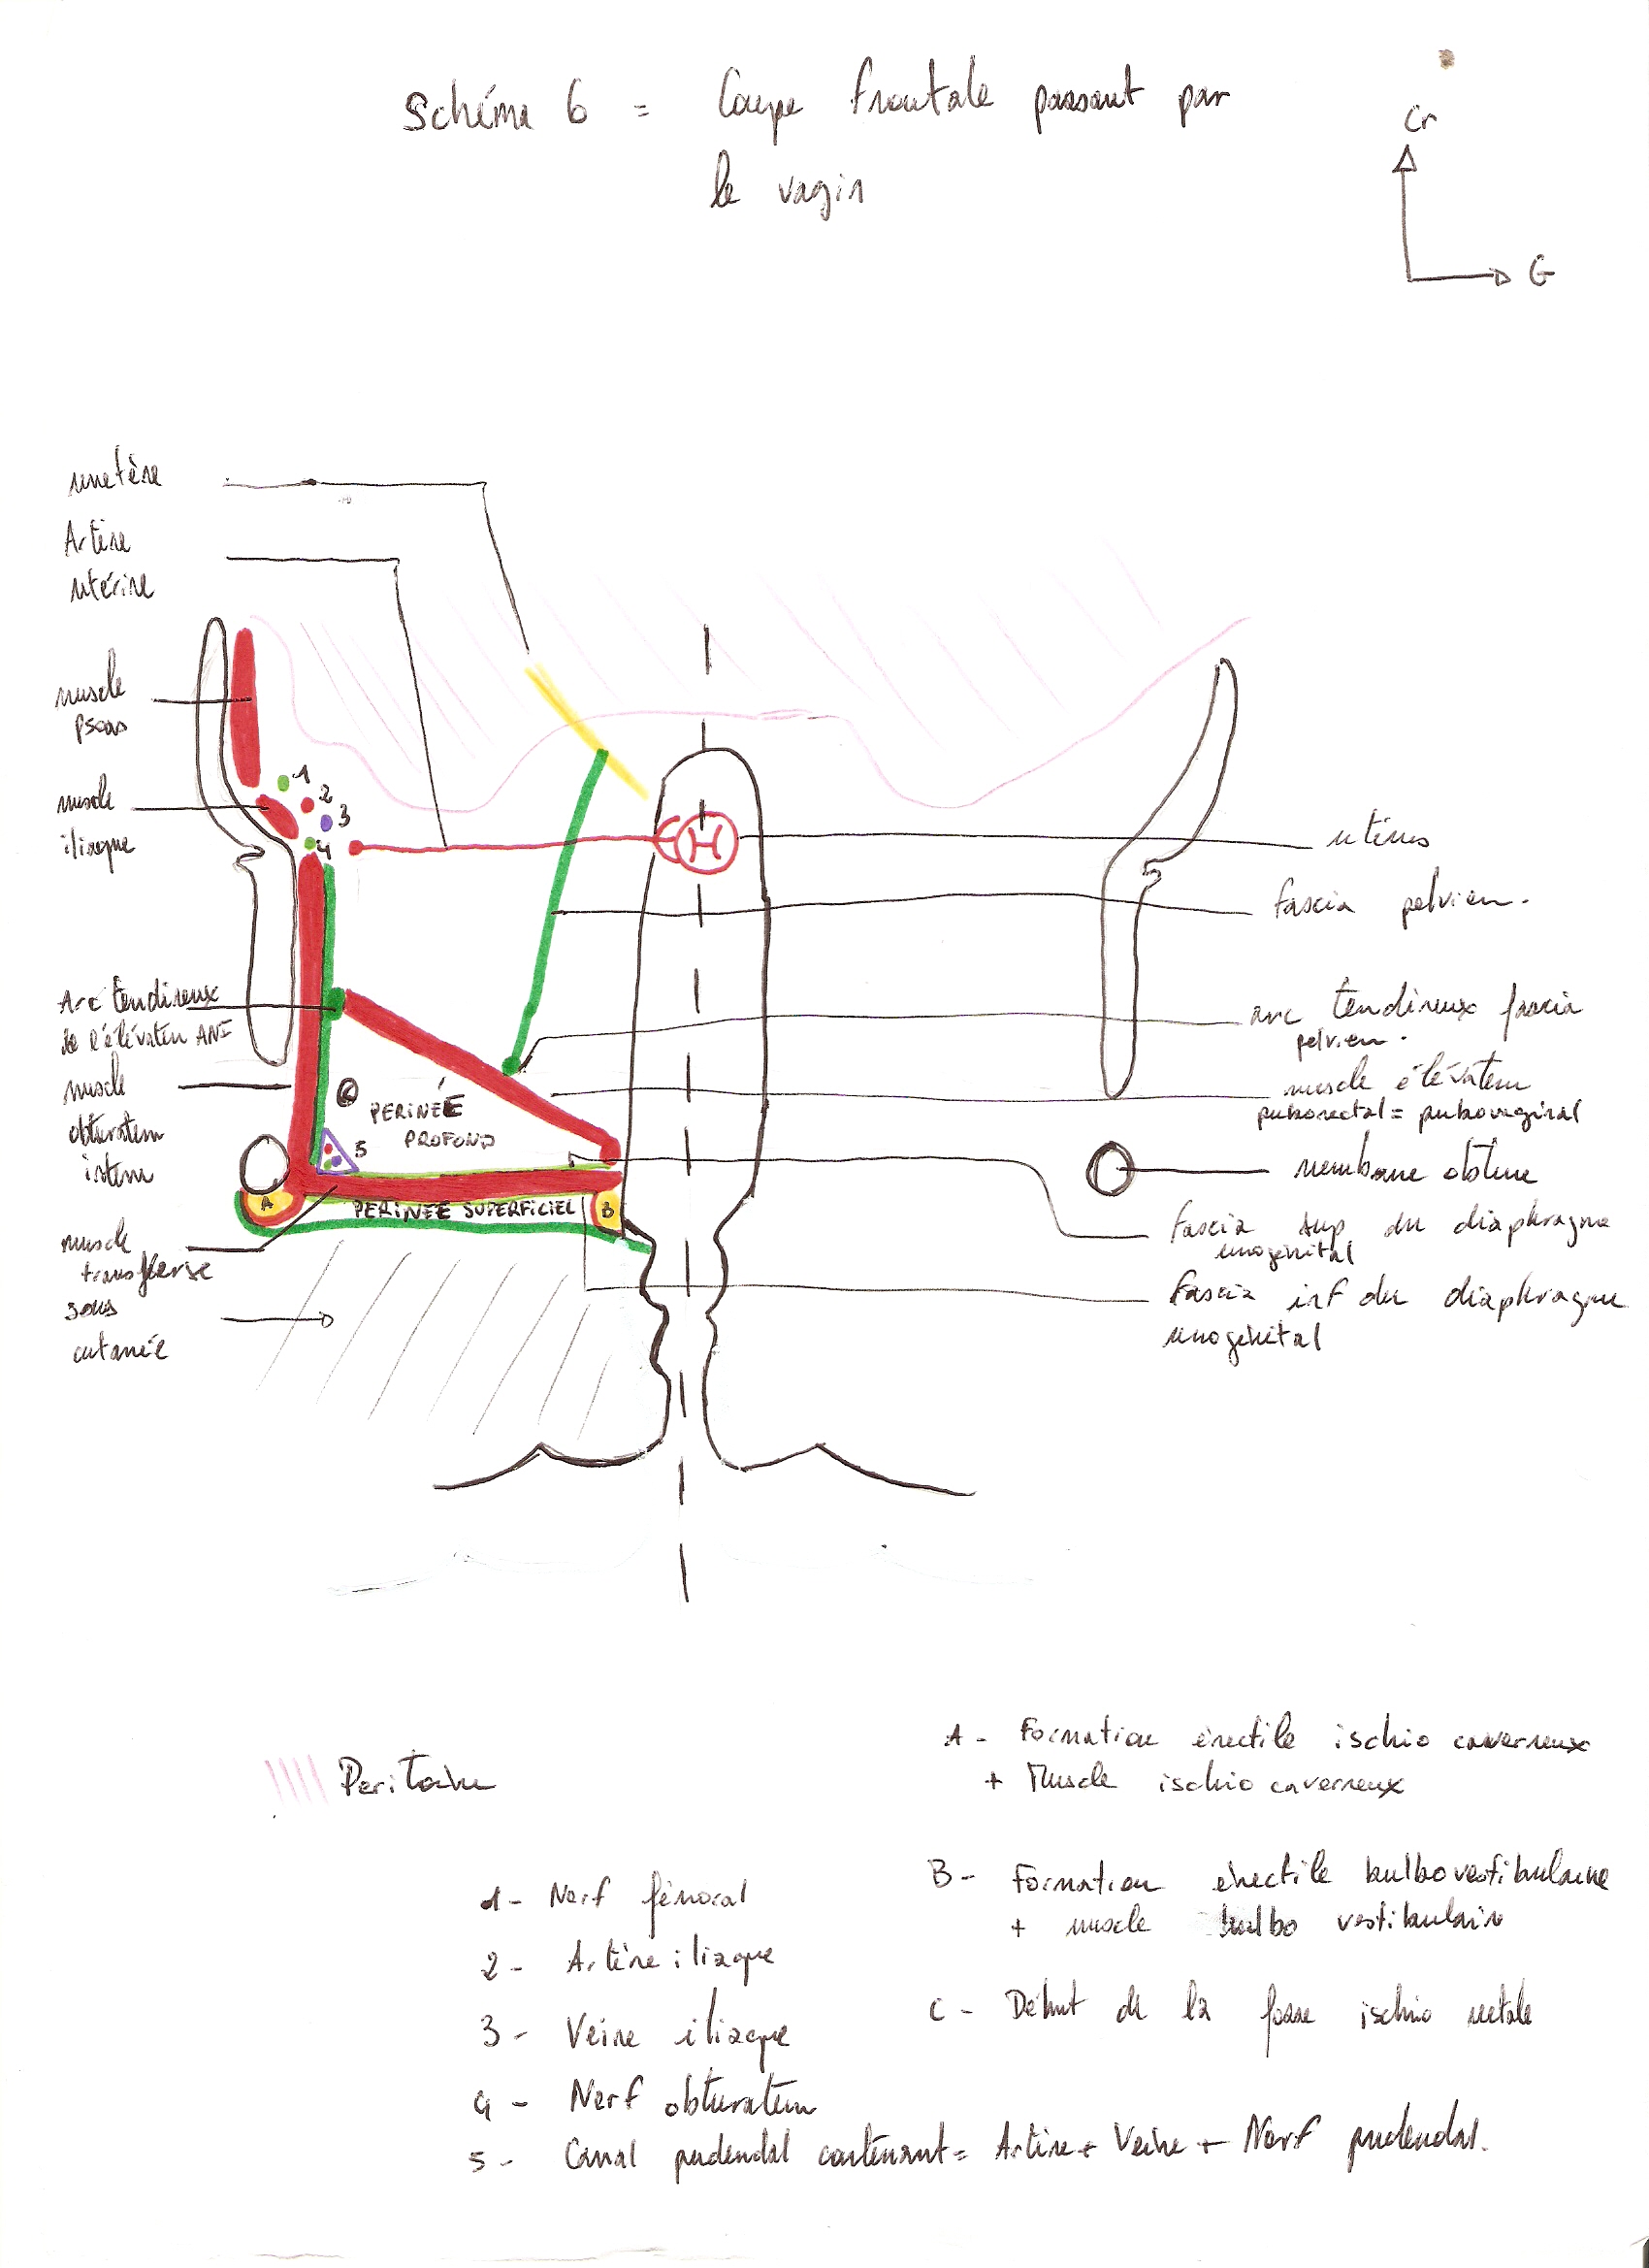 Schéma 6 = Coupe frontale passant par
le vagin
Cr
G
uretère
Artère
utérine
muscle
psoas
muscle
iliaque
1
2
3
4
Arc tendineux
de l'élévateur ANI
muscle
obturateur
interne
C PERINÉE
PROFOND
5
A
PERINÉE SUPERFICIEL
B
muscle
transverse
sous
cutanée
utérus
fascia pelvien.
arc tendineux fascia
pelvien.
muscle élévateur
puborectal = pubovaginal
membrane obture
Fascia sup du diaphragme
urogénital
Fascia inf du diaphragme
urogénital
Peritoine
1- Nerf fémoral
2- Artère iliaque
3- Veine iliaque
4- Nerf obturateur
5- Canal pudendal contenant = Artère + Veine + Nerf pudendal.
A- Formation érectile ischio caverneux
+ Muscle ischio caverneux
B- Formation érectile bulbovestibulaire
+ muscle bulbo vestibulaire
C- Début de la fosse ischio rectale